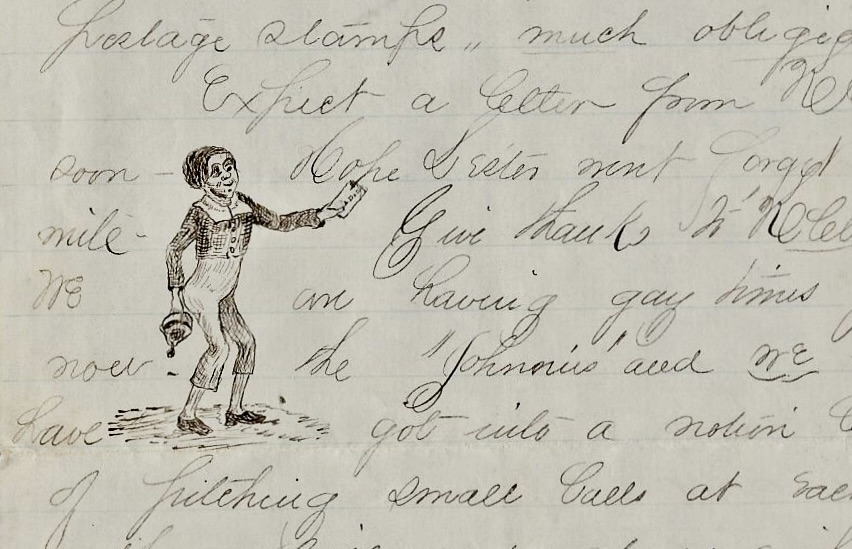 Postage stamps,, much obliged
Expect a letter from
soon - Hope Lester wont forget
mile - Give thanks to
WE are having gay times
now - the "Johnnies" and WE
have got into a notion
of pitching small balls at Eac